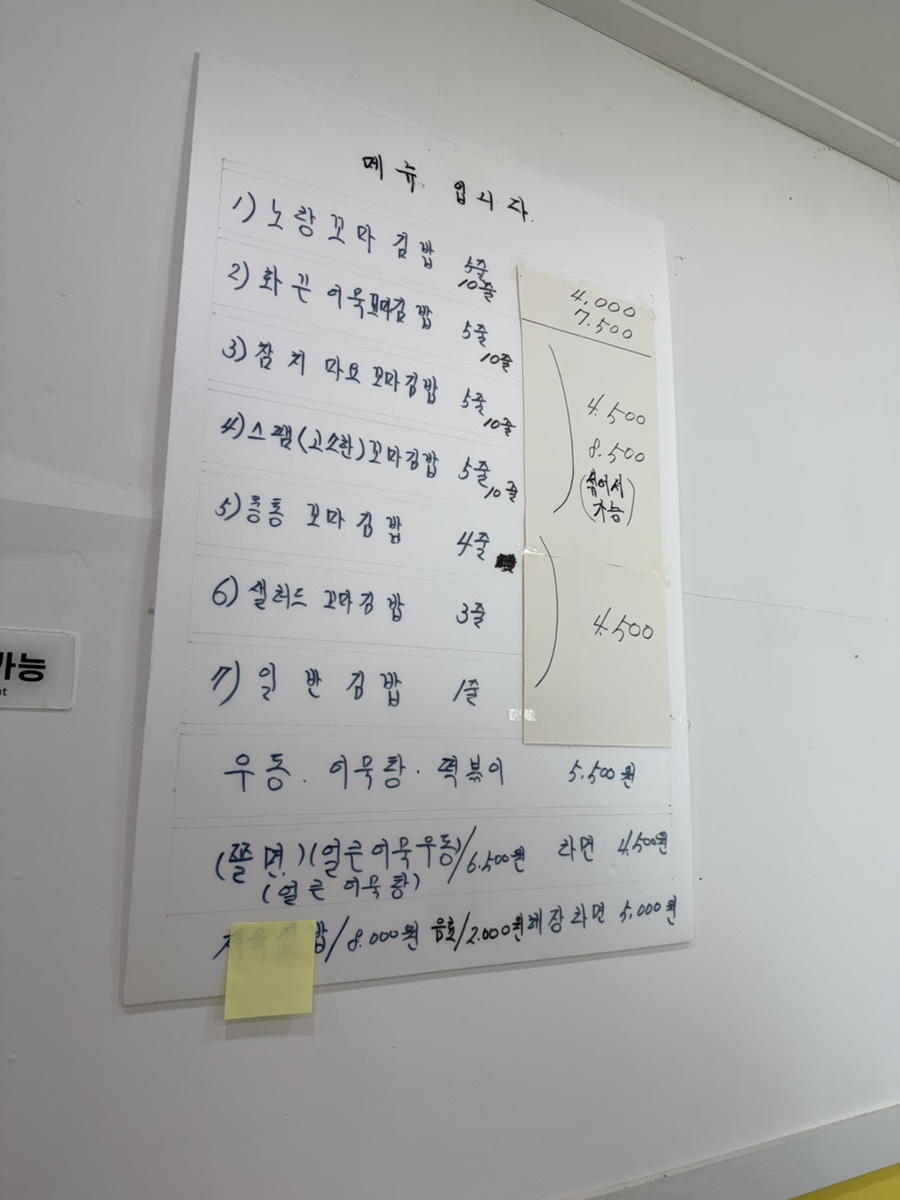 메뉴 입니다.
1) 노랑꼬마김밥 5줄 10줄 4,000 7.500
2) 화끈어묵꼬마김밥 5줄 10줄
3) 참치마요꼬마김밥 5줄 10줄 4.500 8.500 (섞어서 가능)
4) 스팸(고소한)꼬마김밥 5줄 10줄
5) 롱롱꼬마김밥 4줄
6) 샐러드꼬마김밥 3줄 4.500
7) 일반김밥 1줄
우동. 어묵탕. 떡볶이 5.500원
(쫄면.)(얼큰어묵우동)/6.500원 라면 4.500원
(얼큰 어묵탕)
밥/8.000원 음료/2.000원 해장라면 5,000원
가능